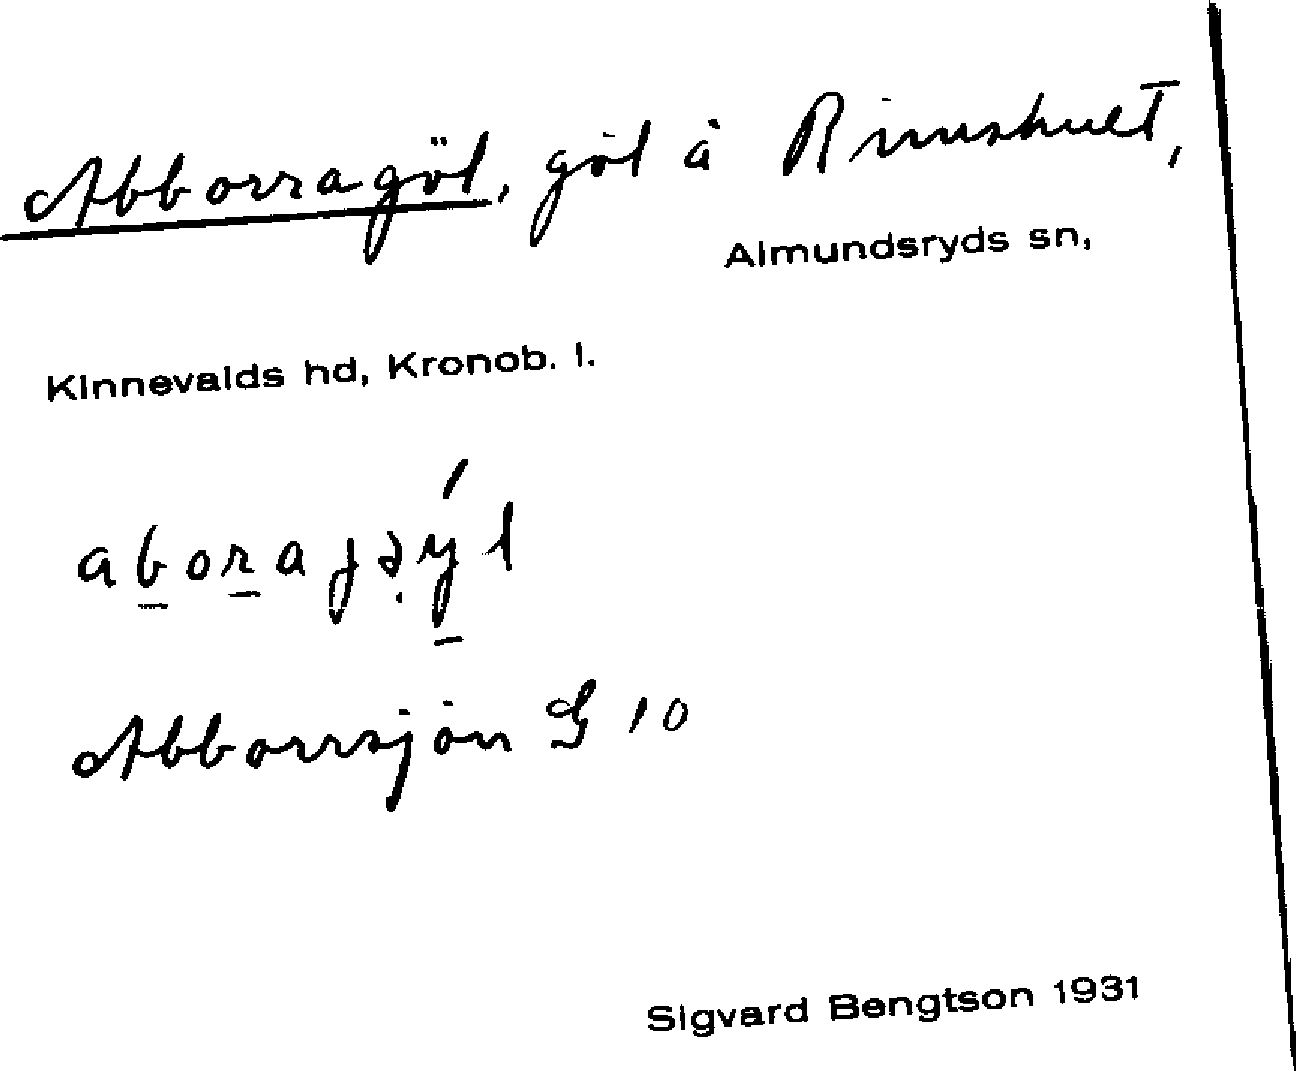 Abborragöl, göl å Rimshult,
Almundsryds sn,
Kinnevalds hd, Kronob. l.
Abborrsjön G 10
Sigvard Bengtson 1931